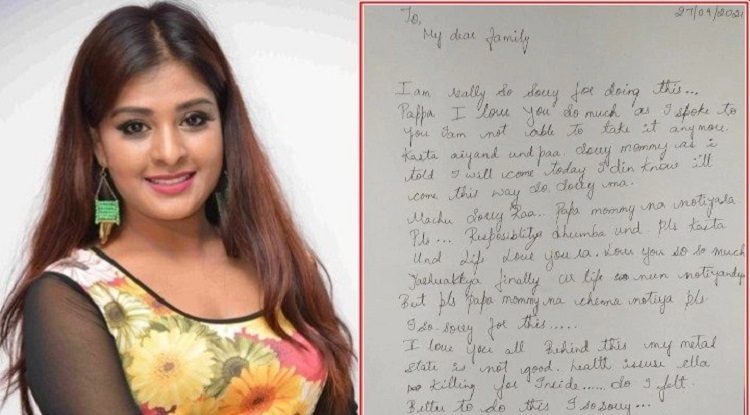 To,
27/09/2021
My dear family
I am really so sorry for doing this...
Pappa I love you so much as I spoke to
you I am not able to take it anymore.
Kasta aiyand und paa. Sorry mommy as i
told I will come today I din know i'll
come this way So, Sorry ma.
Machu Sorry Laa.. Papa mommy na notiyala
Pls... Resposiblitys dhumba und pls Kasta
Und Life Love you ra. Love you so so much
finally life nun notiyandye
But pls Papa mommy na chenna notiya pls.
I so sorry for this.....
I love you all Behind this my metal
state is not good. health issuse ella
Killing for Inside..... So I felt
Better to do this I so sorry...